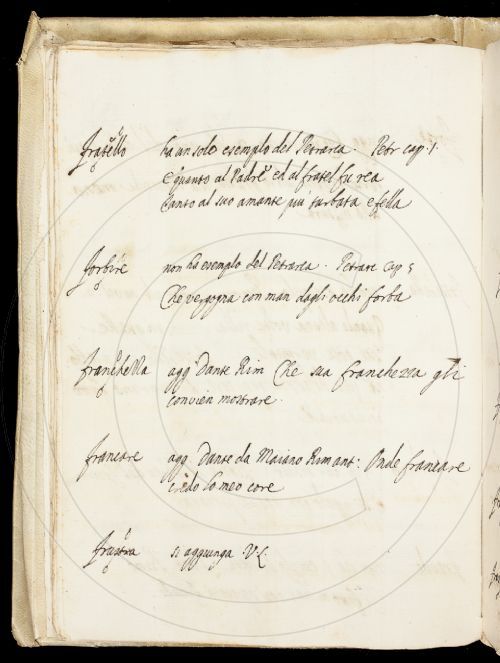 fratello ha un solo esempio del Petrarca. Petr cap. 1
E quanto al Padre ed al fratel fu rea
tanto al suo amante piu turbata e fella
forbire non ha esempio del Petrarca. Petrarc cap 5
Che vergogna con man dagli occhi forba
franchezza agg Dante Rim Che sua franchezza gli
convien mostrare.
francare agg Dante da Maiano Rim ant: Onde francare
credo lo meo core
frustra si aggiunga V L